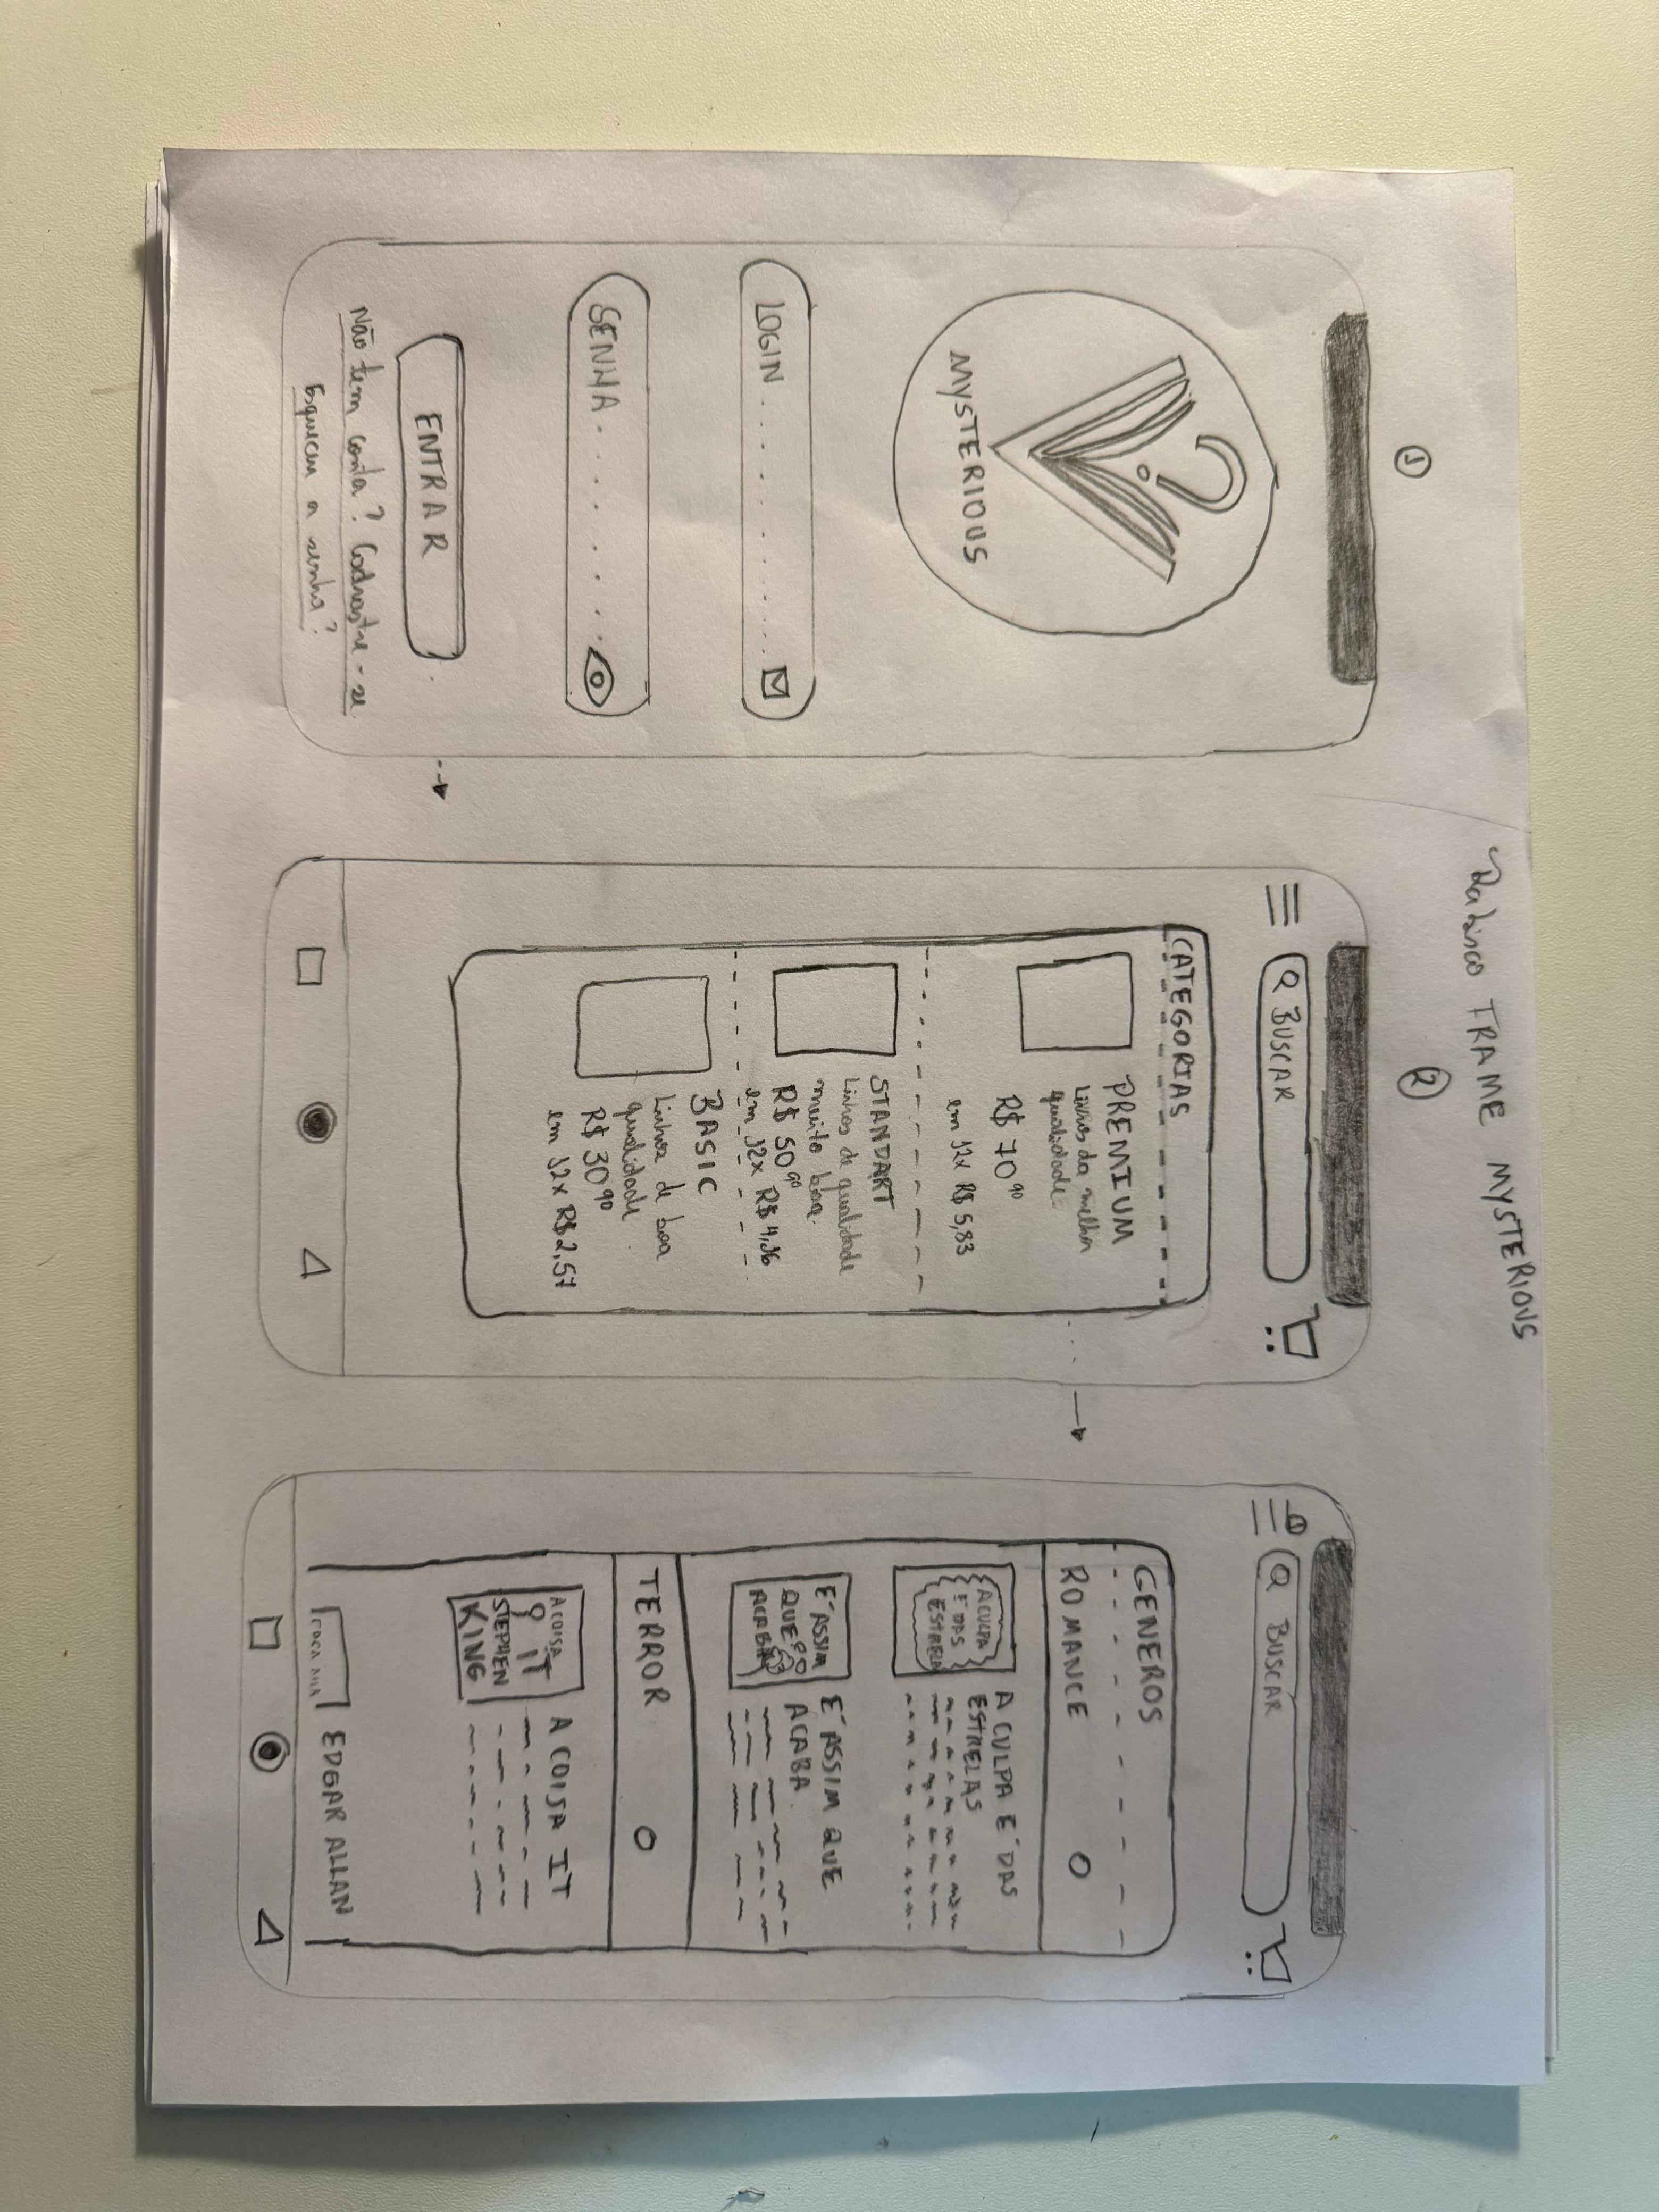 Rabisco FRAME MYSTERIOUS
1
?
MYSTERIOUS
LOGIN
SENHA
ENTRAR
Não tem conta? Cadrastre-se
Esqueceu a senha?
2
BUSCAR
CATEGORIAS
PREMIUM
Livros da melhor
qualidade.
R$ 70,90
em 12x R$ 5,83
STANDART
Livros de qualidade
muito boa.
R$ 50,90
em 12x R$ 4,16
BASIC
Livros de boa
qualidade.
R$ 30,90
em 12x R$ 2,57
BUSCAR
GENEROS
ROMANCE
A CULPA
É DAS
ESTRELA
A CULPA É DAS
ESTRELAS
É ASSIM
QUE
ACABA
É ASSIM QUE
ACABA
TERROR
A COISA
IT
STEPHEN
KING
A COISA IT
EDGAR ALLAN